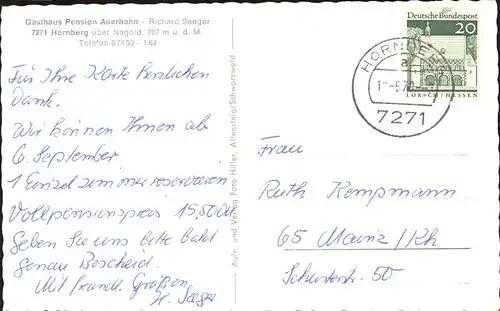 Gasthaus Pension Auerhahn - Richard Seeger
7271 Hornberg über Nagold, 707 m ü. d. M.
Telefon 07453 - 163
Für Ihre Karte herzlichen
Dank.
Wir können Ihnen ab
6. September
1 Einzelzimmer reservieren
Vollpensionspreis 15,50
Geben Sie uns bitte bald
genau Bescheid.
Mit freundl. Grüßen
Seeger
Aufn. und Verlag Foto Hiller, Altensteig/Schwarzwald
Deutsche Bundespost
20
LORSCH/HESSEN
a
7271
Frau
Ruth Kempmann
65 Mainz/Rh
50